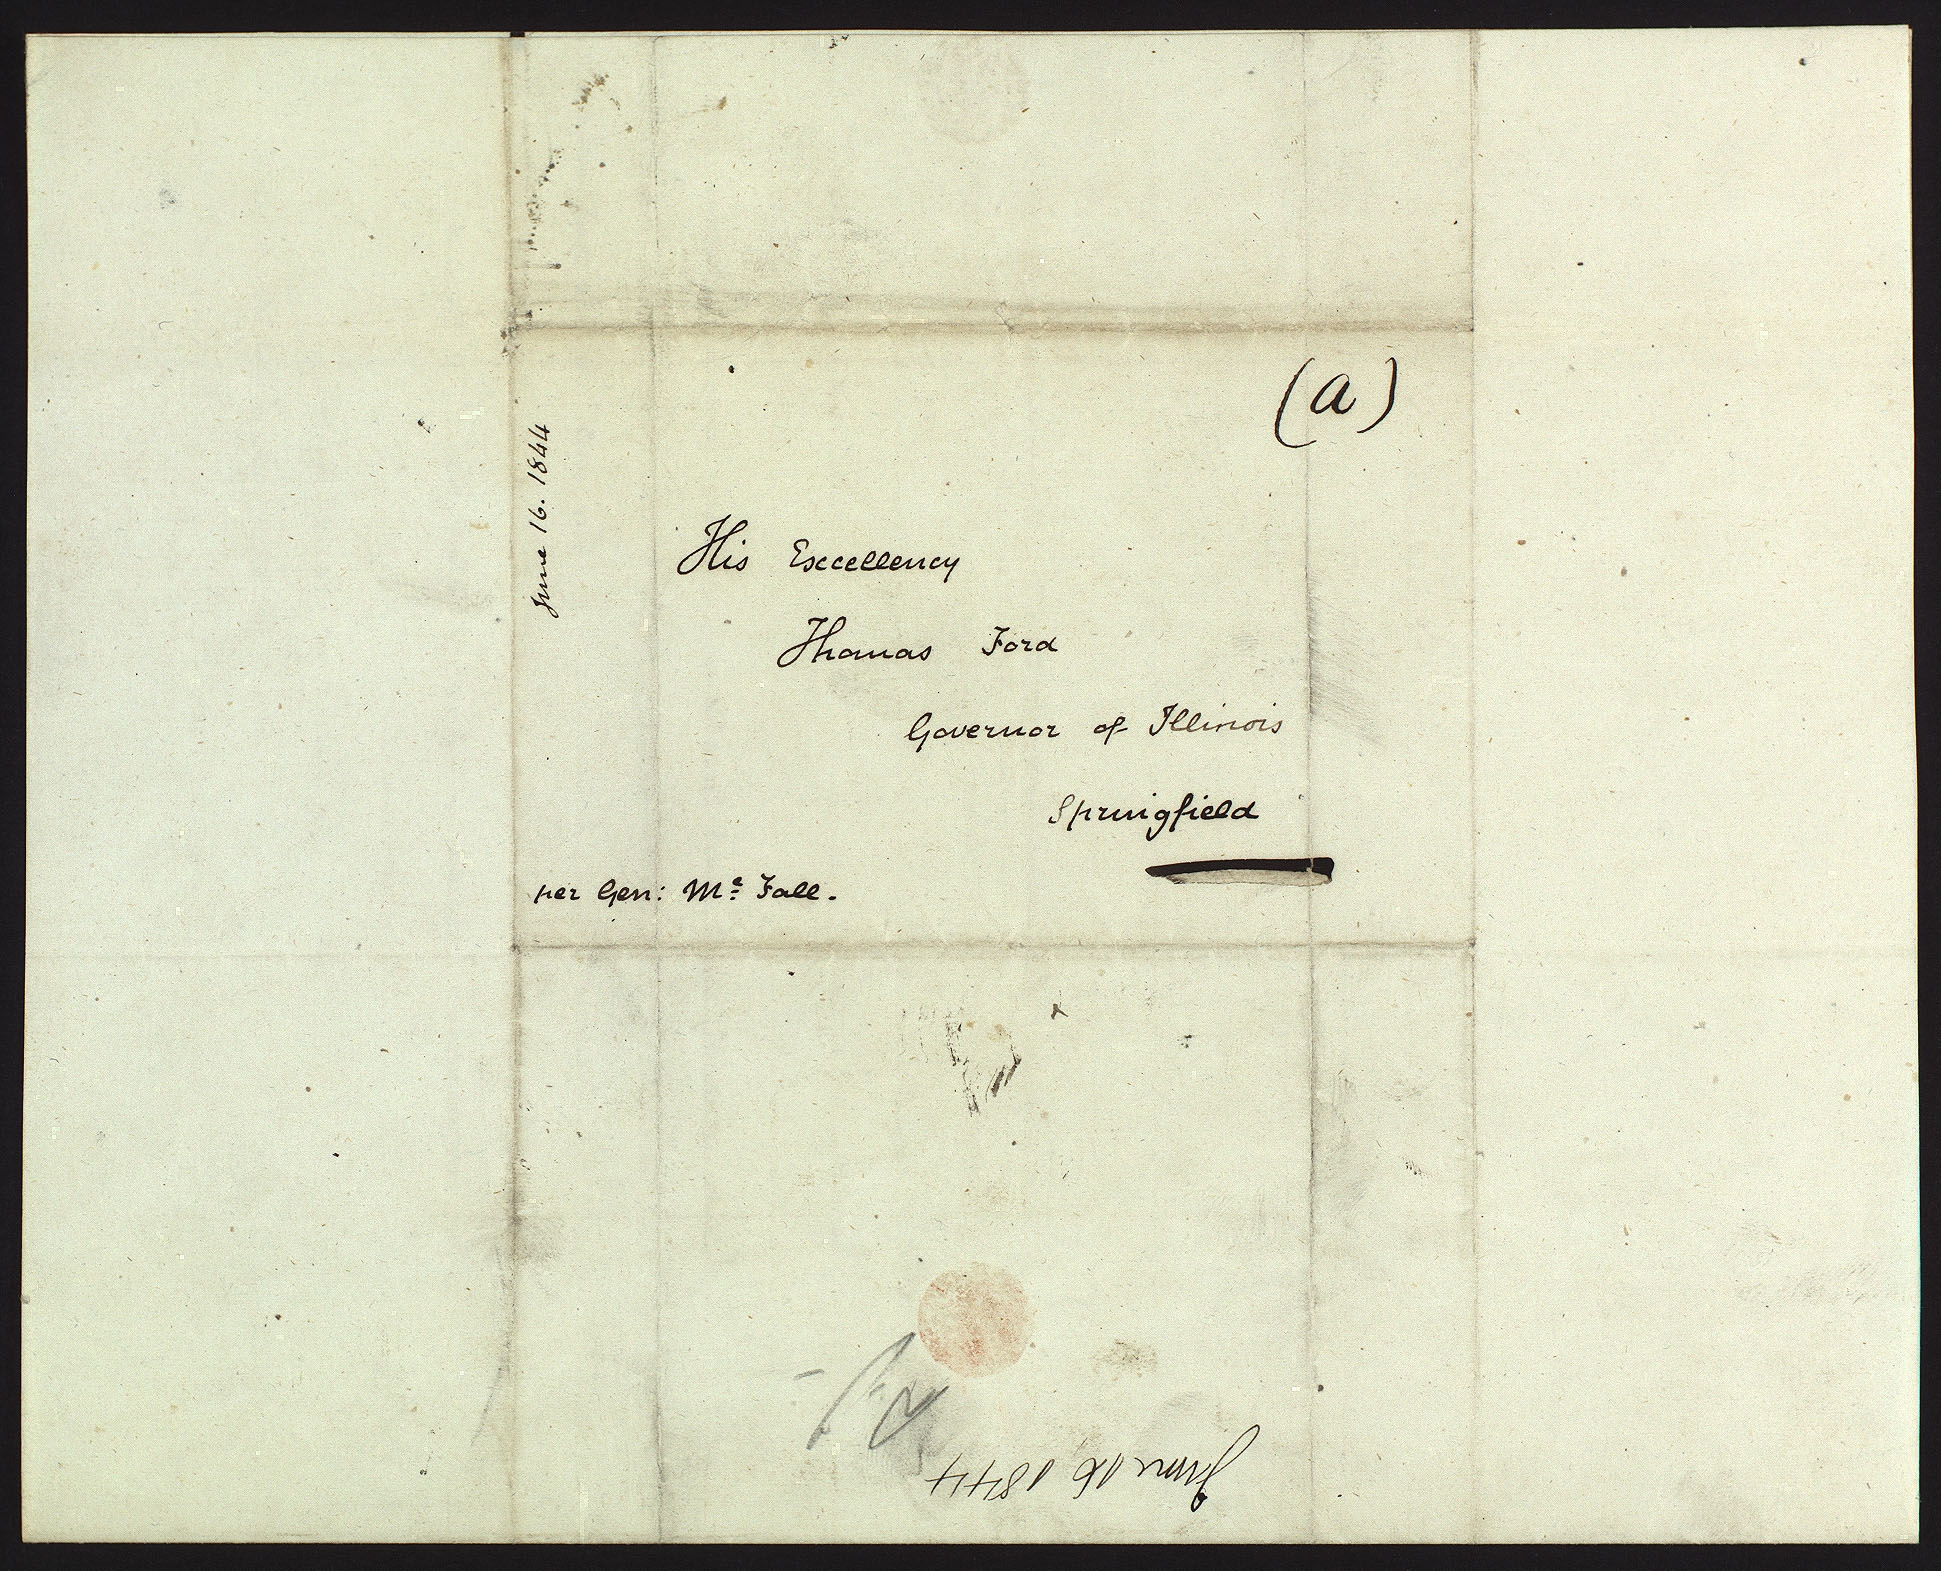 (a)
June 16. 1844
His Excellency
Thomas Ford
Governor of Illinois
Springfield
per Gen: Mc Fall.
June 16, 1844